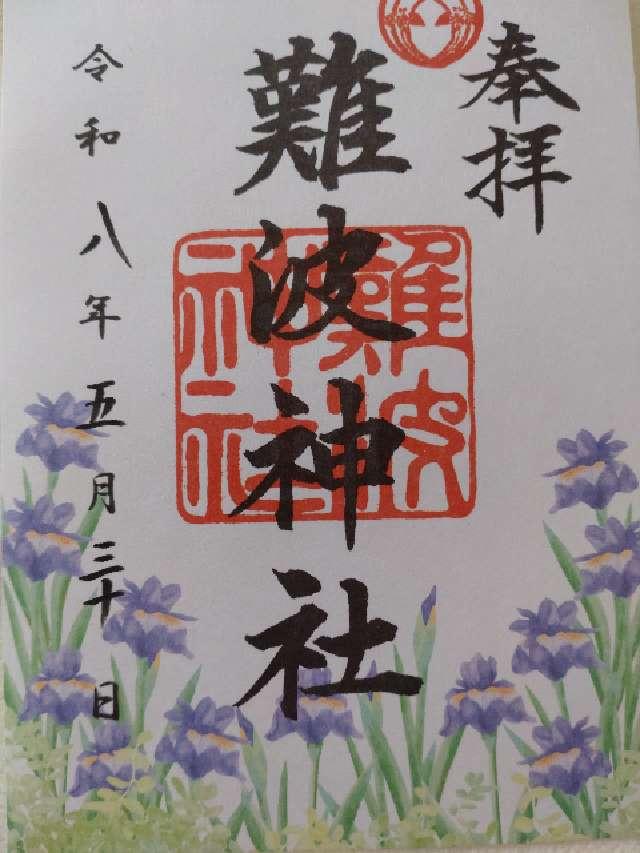 奉拝
難波神社
難波神社
令和八年五月三十日